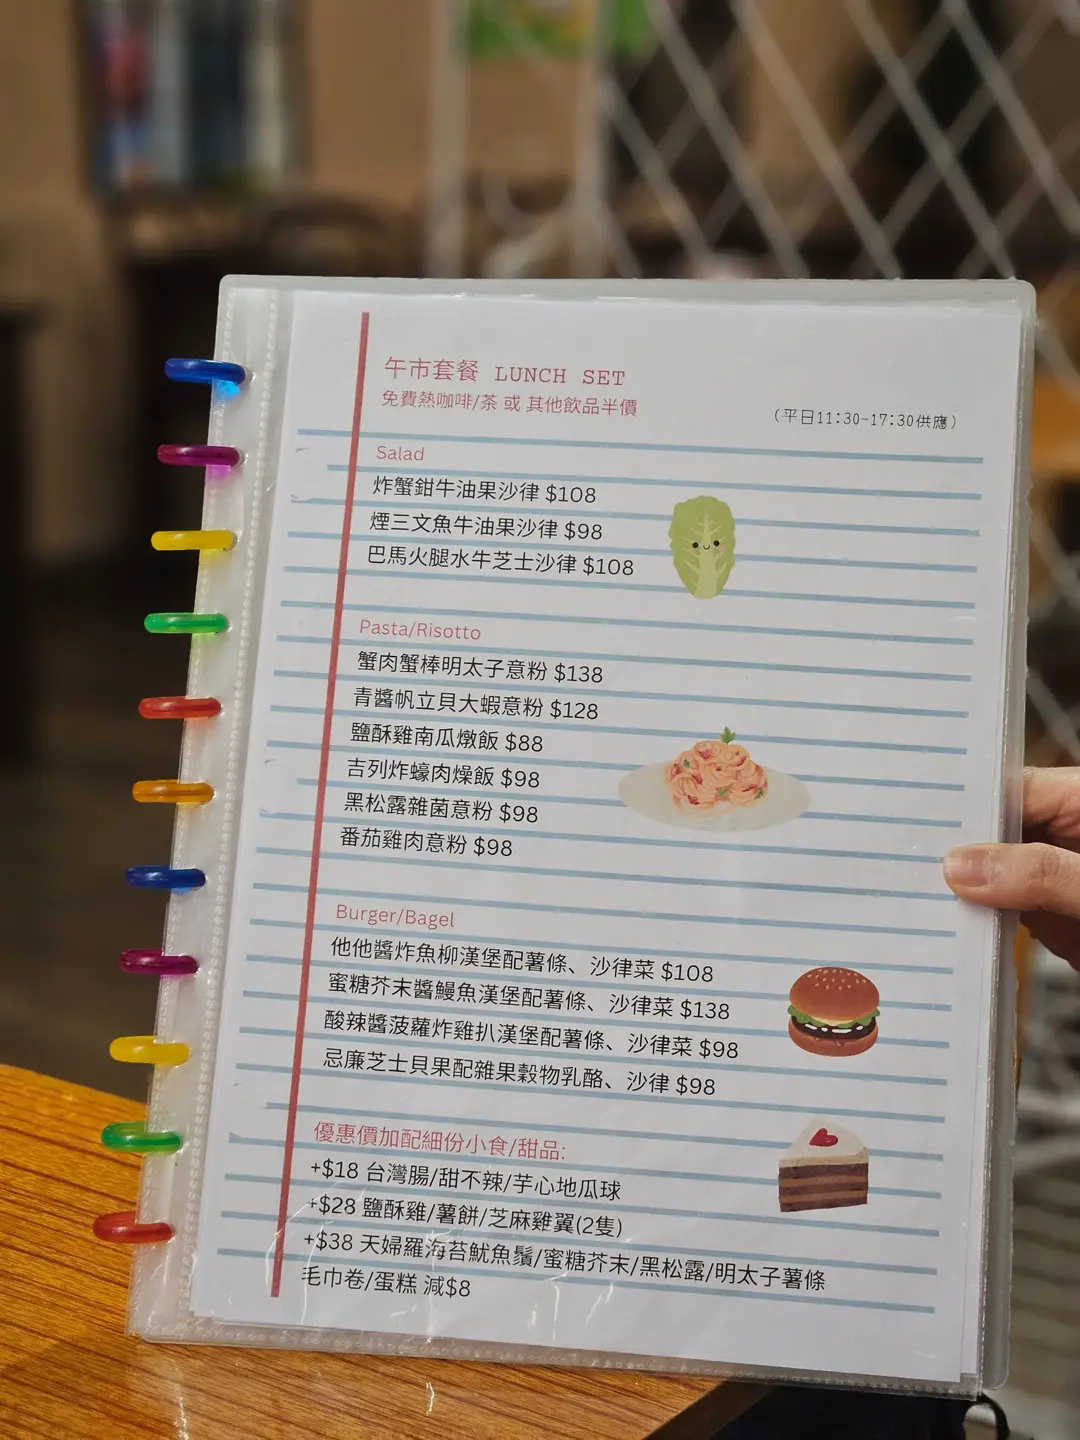 午市套餐 LUNCH SET
免費熱咖啡/茶 或 其他飲品半價
(平日11:30-17:30供應)
Salad
炸蟹鉗牛油果沙律 $108
煙三文魚牛油果沙律 $98
巴馬火腿水牛芝士沙律 $108
Pasta/Risotto
蟹肉蟹棒明太子意粉 $138
青醬帆立貝大蝦意粉 $128
鹽酥雞南瓜燉飯 $88
吉列炸蠔肉燥飯 $98
黑松露雜菌意粉 $98
番茄雞肉意粉 $98
Burger/Bagel
他他醬炸魚柳漢堡配薯條、沙律菜 $108
蜜糖芥末醬鰻魚漢堡配薯條、沙律菜 $138
酸辣醬菠蘿炸雞扒漢堡配薯條、沙律菜 $98
忌廉芝士貝果配雜果穀物乳酪、沙律 $98
優惠價加配細份小食/甜品:
+$18 台灣腸/甜不辣/芋心地瓜球
+$28 鹽酥雞/薯餅/芝麻雞翼(2隻)
+$38 天婦羅海苔魷魚鬚/蜜糖芥末/黑松露/明太子薯條
毛巾卷/蛋糕 減$8